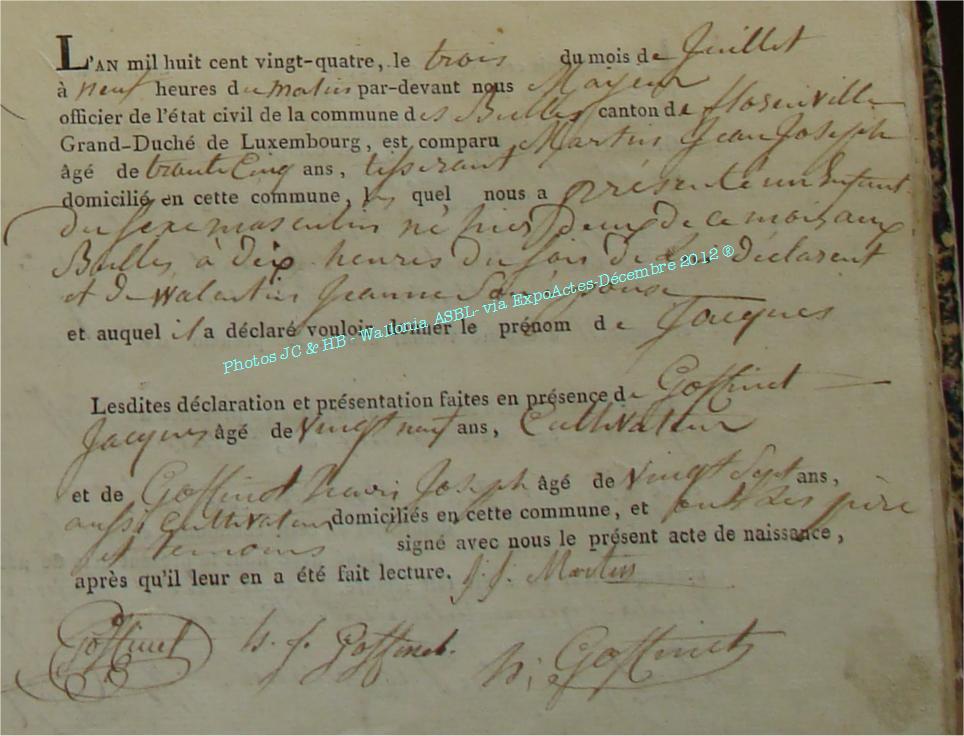 L'AN mil huit cent vingt-quatre, le trois du mois de Juillet
à neuf heures du matin par-devant nous Mayeur
officier de l'état civil de la commune des Bulles canton de florenville
Grand-Duché de Luxembourg, est comparu Martin Jean Joseph
âgé de trente Cinq ans, tisserant
domicilié en cette commune, le quel nous a présenté un Enfant
Du sexe masculin né hier deux de ce mois aux
Bulles à dix heures du soir de lui Déclarent
et de Walentin Jeanne Son épouse
et auquel il a déclaré vouloir donner le prénom de Jacques
Photos JC & HB - Wallonia ASBL- via ExpoActes-Décembre 2012 ®
Lesdites déclaration et présentation faites en présence de Goffinet
Jacques âgé de vingt neuf ans, Cultivateur
et de Goffinet henri Joseph âgé de vingt Sept ans,
aussi Cultivateur domiciliés en cette commune, et ont les père
et temoins signé avec nous le présent acte de naissance,
après qu'il leur en a été fait lecture. j. j. Martin
Goffinet h. j. Goffinet. h; Goffinet